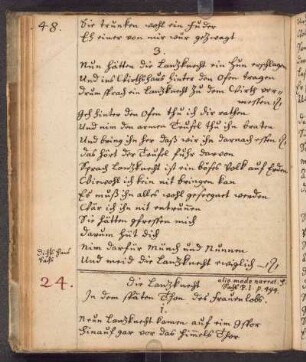 48.
Sie trunken wohl ein fuder
Eh einer von mir war gefragt
3.
Nun hätten die Lanzknecht ein Hun erschlagen
Und ins Wirthshaus hinter den Ofen tragen
drum sprach ein Lanzknecht zu dem Wirth ver-
messen
Geh hinter den Ofen thu ich dir rathen
Und nim den armen Teufel thu ihn braten
Und bring ihn her daß wir ihn darnach essen
das hört der Teufel fuhr davon
Sprach Lanzknecht ist ein böses Volk auf Erden
Wiewohl ich kein mit bringen kan
Es muß ihn allen wohl geforget werden
Wär ich ihn nit entrunnen
Sie hätten gfressen mich
darum hüt dich
Nim darfür Münch und Nunnen
Und meid die Lanzknecht ewiglich
24.
Die Lanzknecht
alio modo narrat.
P. I. p. 194.
In dem späten Thon des Frauenlobs.
1.
Neun Lanzknecht kamen auf ein
hinauf gar vor das himels Thor